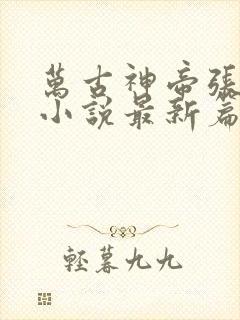 萬古神帝張
小說最新篇
輕暮九九